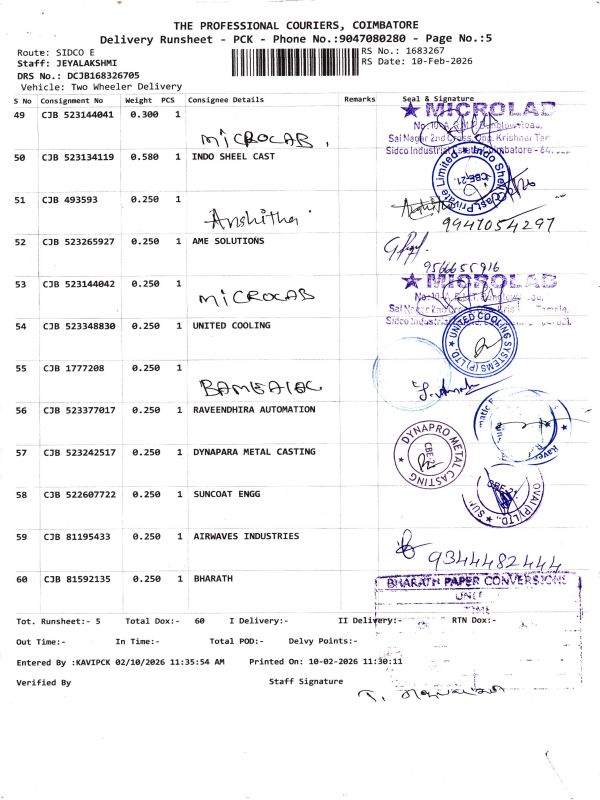 THE PROFESSIONAL COURIERS, COIMBATORE
Delivery Runsheet - PCK - Phone No.:9047080280 - Page No.:5
Route: SIDCO E
RS No.: 1683267
Staff: JEYALAKSHMI
RS Date: 10-Feb-2026
DRS No.: DCJB168326705
Vehicle: Two Wheeler Delivery
S No Consignment No Weight PCS Consignee Details Remarks Seal & Signature
49 CJB 523144041 0.300 1
MICROCAB.
MICROLAB
Sai Nagar 2nd Cross,
Sidco Industrial
50 CJB 523134119 0.580 1 INDO SHEEL CAST
Indo Shell Cast Private Limited
CBE-21.
51 CJB 493593 0.250 1
Anshitha
9947054297
52 CJB 523265927 0.250 1 AME SOLUTIONS
9566655916
53 CJB 523144042 0.250 1
MICROCAB
MICROLAB
54 CJB 523348830 0.250 1 UNITED COOLING
UNITED COOLING SYSTEMS (P) LTD.
55 CJB 1777208 0.250 1
56 CJB 523377017 0.250 1 RAVEENDHIRA AUTOMATION
57 CJB 523242517 0.250 1 DYNAPARA METAL CASTING
DYNAPRO METAL CASTING
58 CJB 522607722 0.250 1 SUNCOAT ENGG
59 CJB 81195433 0.250 1 AIRWAVES INDUSTRIES
9344482444
60 CJB 81592135 0.250 1 BHARATH
BHARATH PAPER CONVERSIONS
Tot. Runsheet:- 5 Total Dox:- 60 I Delivery:- II Delivery:- RTN Dox:-
Out Time:- In Time:- Total POD:- Delvy Points:-
Entered By :KAVIPCK 02/10/2026 11:35:54 AM Printed On: 10-02-2026 11:30:11
Verified By Staff Signature